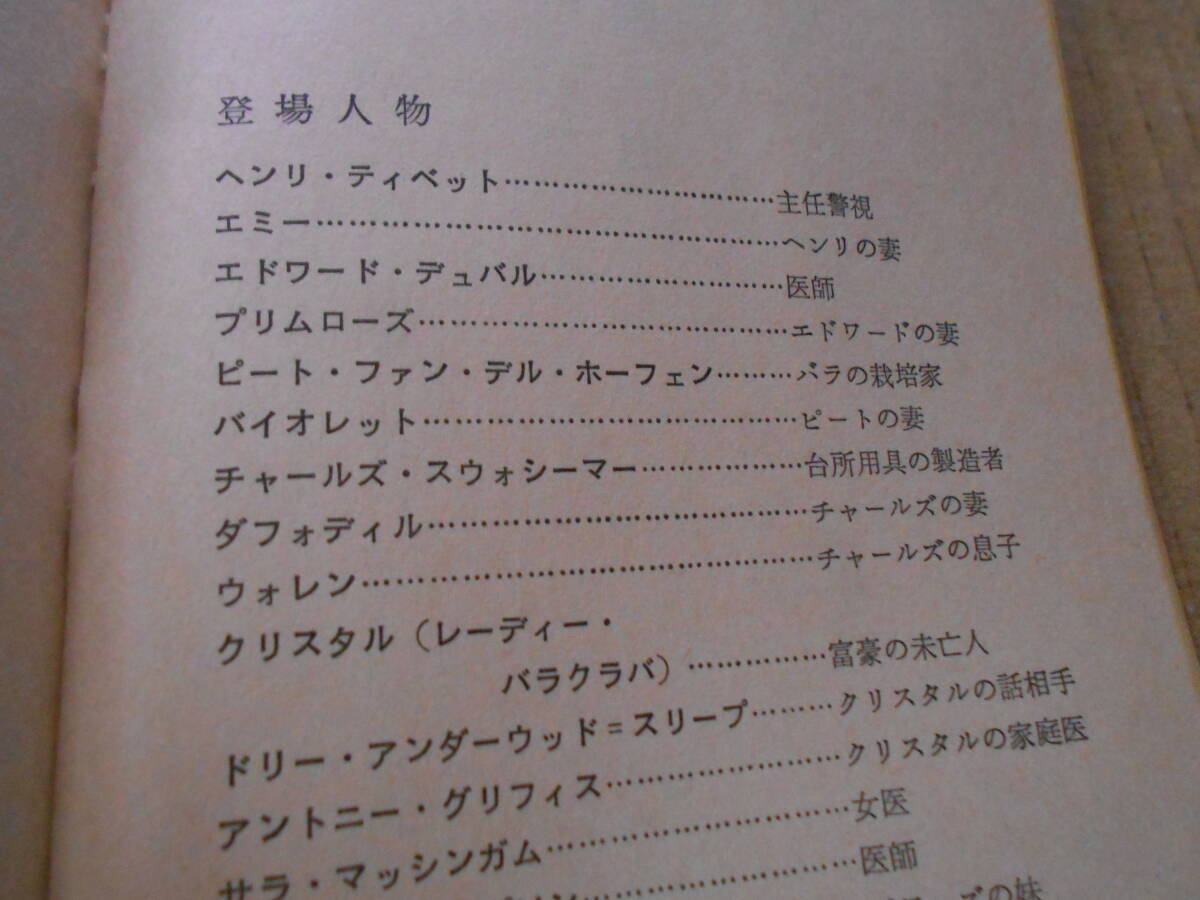 登場人物
ヘンリ・ティベット……………………主任警視
エミー……………………………………ヘンリの妻
エドワード・デュバル…………………医師
プリムローズ……………………………エドワードの妻
ピート・ファン・デル・ホーフェン………バラの栽培家
バイオレット……………………………ピートの妻
チャールズ・スウォシーマー……………台所用具の製造者
ダフォディル……………………………チャールズの妻
ウォレン…………………………………チャールズの息子
クリスタル（レーディー・
バラクラバ）……………富豪の未亡人
ドリー・アンダーウッド＝スリープ………クリスタルの話相手
アントニー・グリフィス…………………クリスタルの家庭医
サラ・マッシンガム……………………女医
……医師
の妹